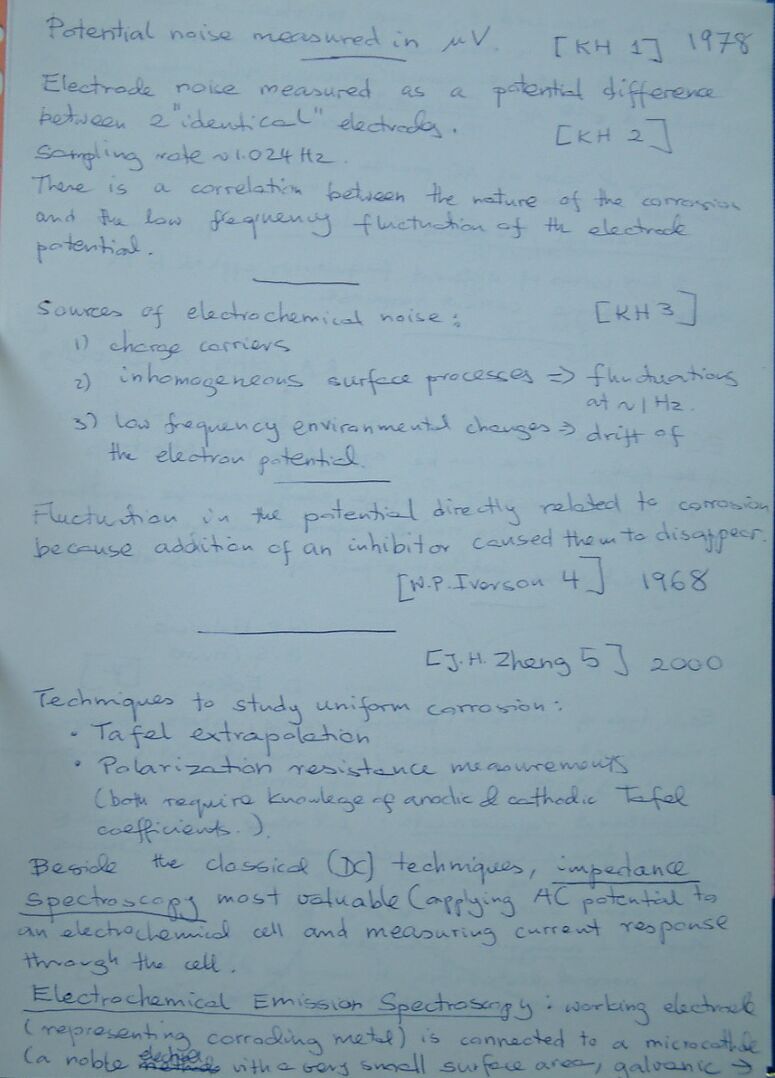 Potential noise measured in μV. [KH 1] 1978
Electrode noise measured as a potential difference
between 2 "identical" electrodes. [KH 2]
Sampling rate ~1.024 Hz.
There is a correlation between the nature of the corrosion
and the low frequency fluctuation of the electrode
potential.
Sources of electrochemical noise: [KH 3]
1) charge carriers
2) inhomogeneous surface processes => fluctuations
at ~1 Hz.
3) low frequency environmental changes => drift of
the electron potential.
Fluctuation in the potential directly related to corrosion
because addition of an inhibitor caused them to disappear.
[W.P. Iverson 4] 1968
[J.H. Zheng 5] 2000
Techniques to study uniform corrosion:
• Tafel extrapolation
• Polarization resistance measurements
(both require knowlege of anodic & cathodic Tafel
coefficients.).
Beside the classical (DC) techniques, impedance
spectroscopy most valuable (applying AC potential to
an electrochemical cell and measuring current response
through the cell.
Electrochemical Emission Spectroscopy: working electrode
(representing corroding metal) is connected to a microcathode
(a noble electrode with a very small surface area, galvanic →